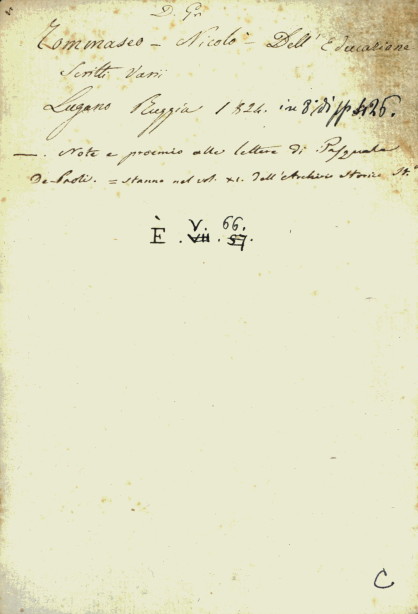 D. Gr
Tommaseo - Nicolò - Dell'Educazione
Scritti Varii
Lugano Ruggia 1824. in 8° di pp 426.
—. Note e proemio alle lettere di Pasquale
De-Paoli. = stanno nel vol. XI. dell'Archivio Storico It.
V. 66.
È . VII . 57.
C